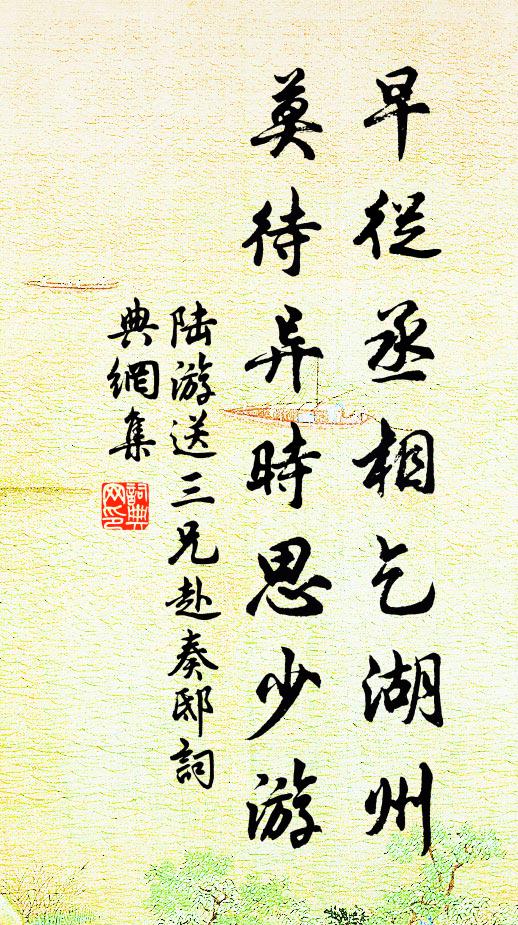 早從丞相乞湖州
莫待异時思少游
陆游送三兄赴奏邸詞
典網集
詞典网印